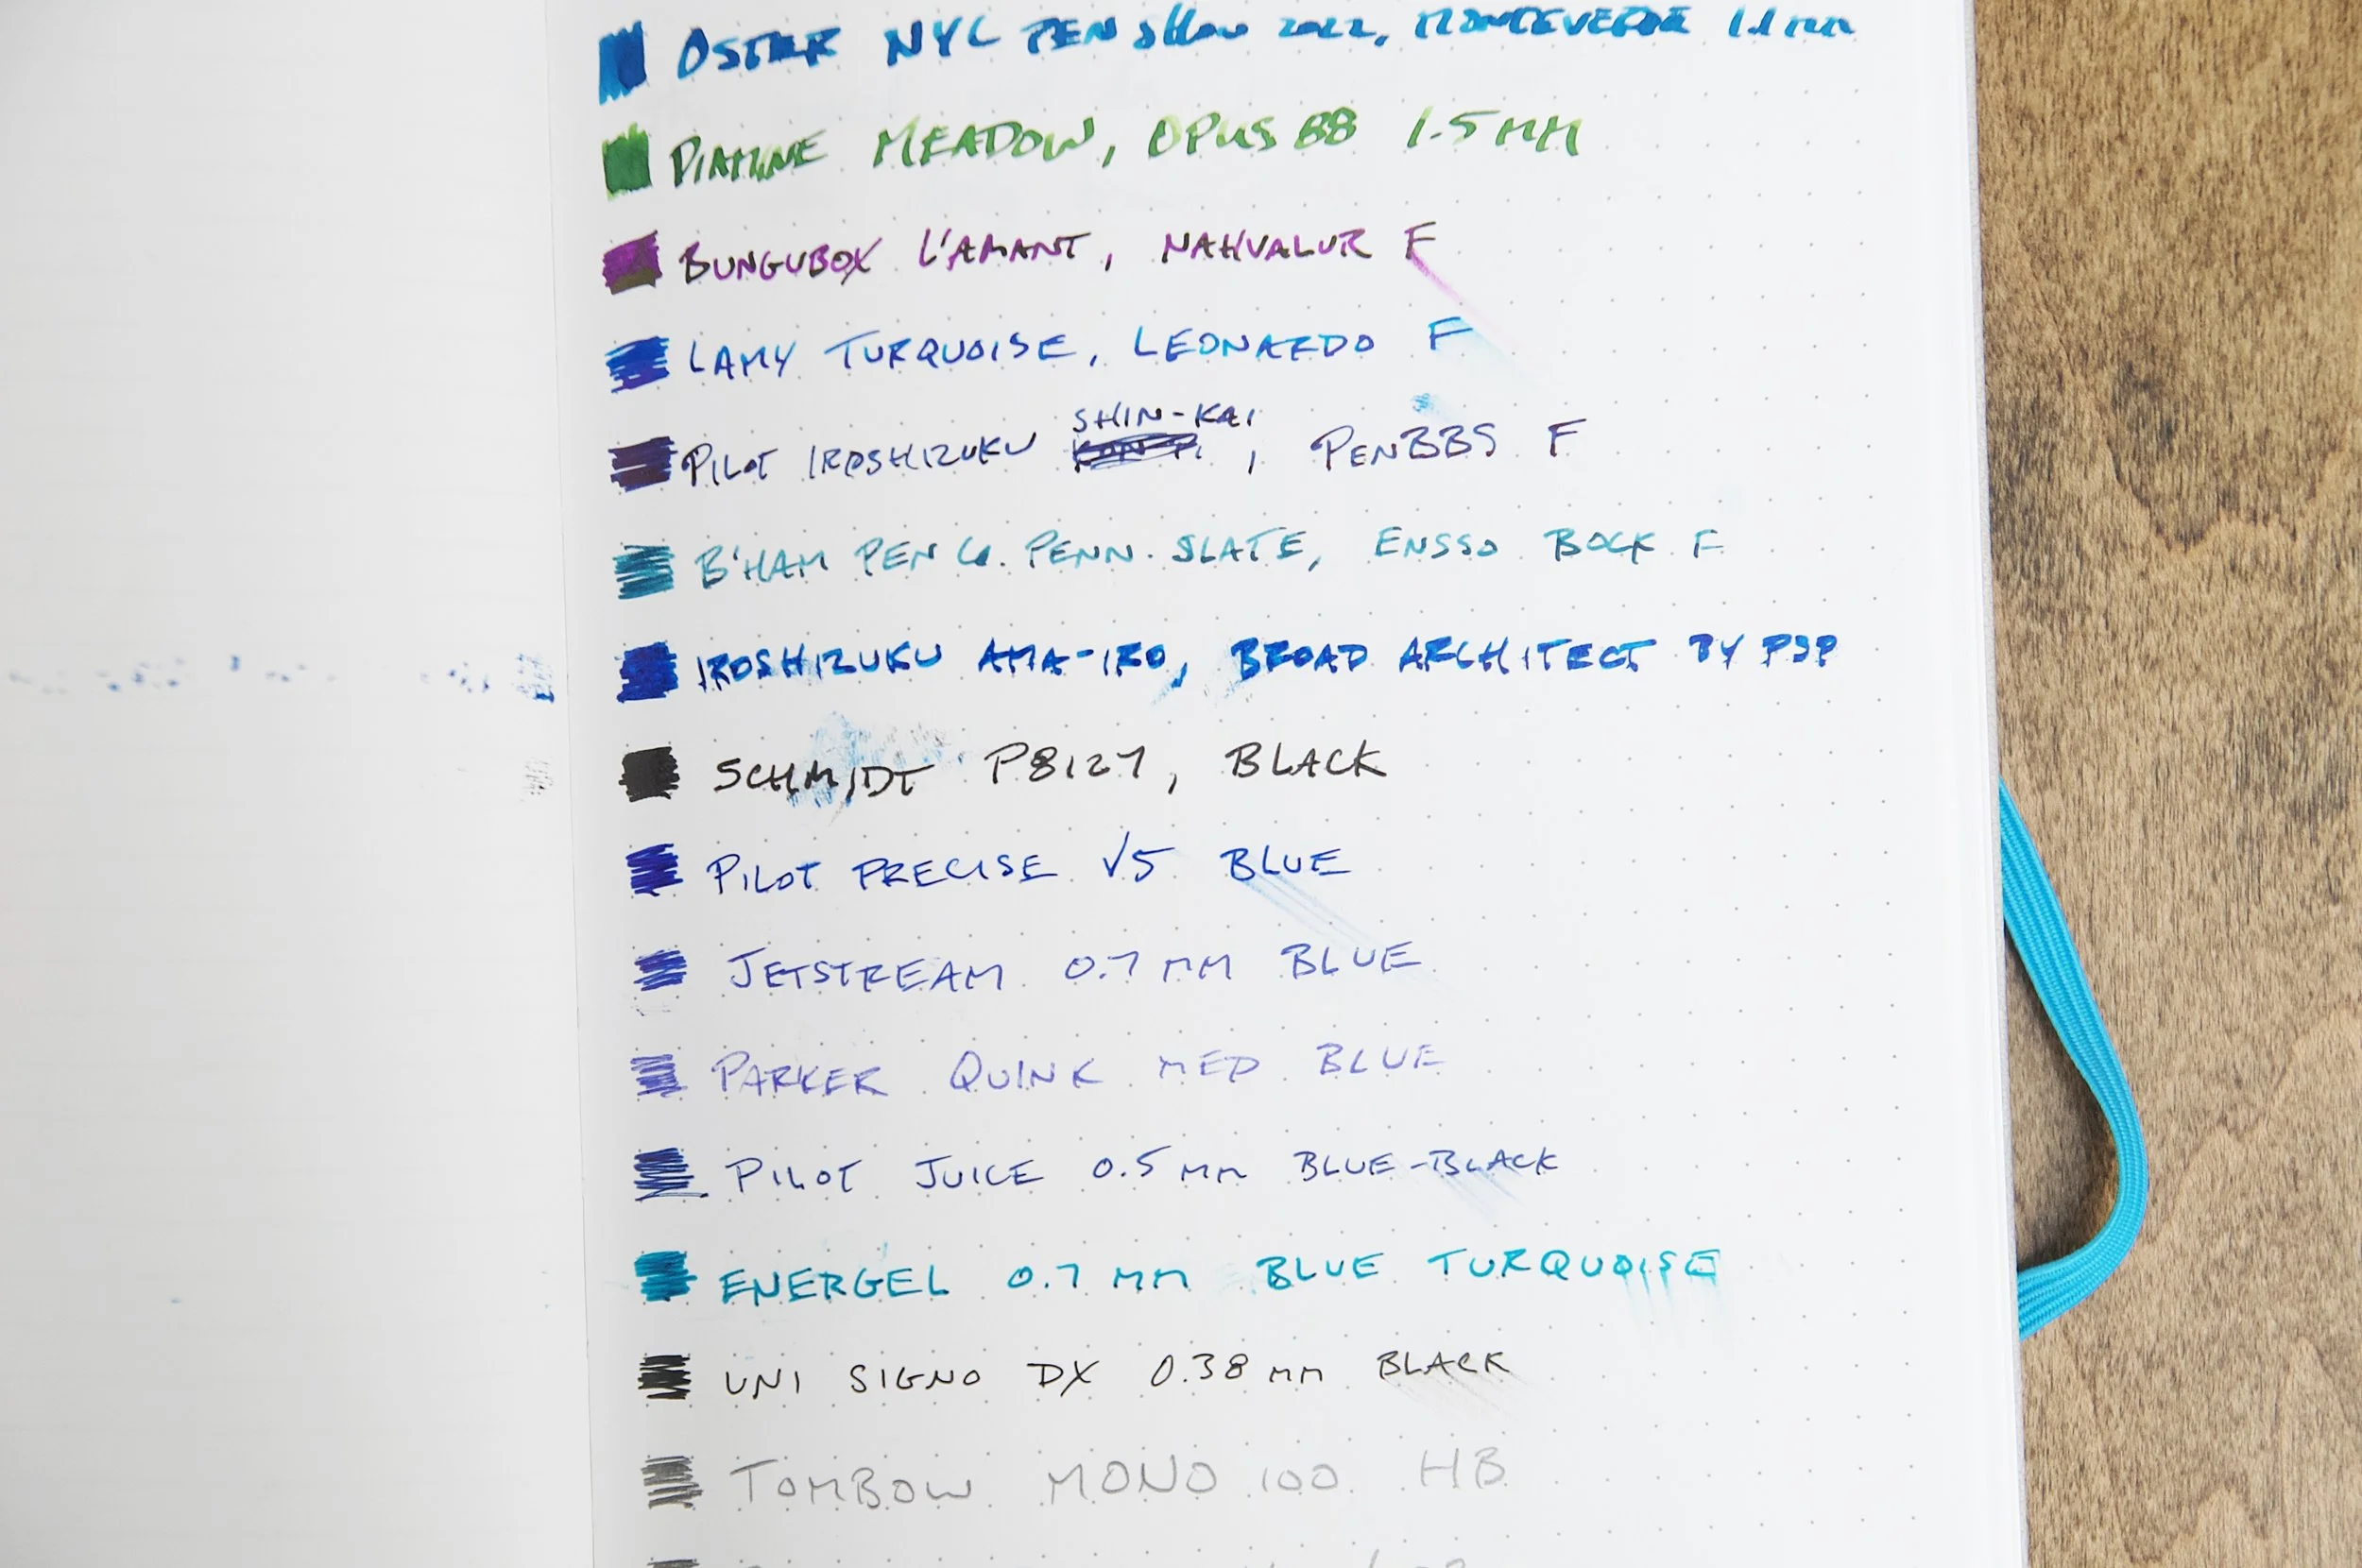 OSTER NYC PEN SHOW 2022, MONTEVERDE 1.1 MM
DIAMINE MEADOW, OPUS 88 1.5 MM
BUNGUBOX L'AMANT, NAHVALUR F
LAMY TURQUOISE, LEONARDO F
SHIN-KAI
PILOT IROSHIZUKU , PENBBS F
B'HAM PEN Co. PENN. SLATE, ENSSO BOCK F
IROSHIZUKU AMA-IRO, BROAD ARCHITECT BY PSP
SCHMIDT P8127, BLACK
PILOT PRECISE V5 BLUE
JETSTREAM 0.7 MM BLUE
PARKER QUINK MED BLUE
PILOT JUICE 0.5 MM BLUE-BLACK
ENERGEL 0.7 MM BLUE TURQUOISE
UNI SIGNO DX 0.38 MM BLACK
TOMBOW MONO 100 HB